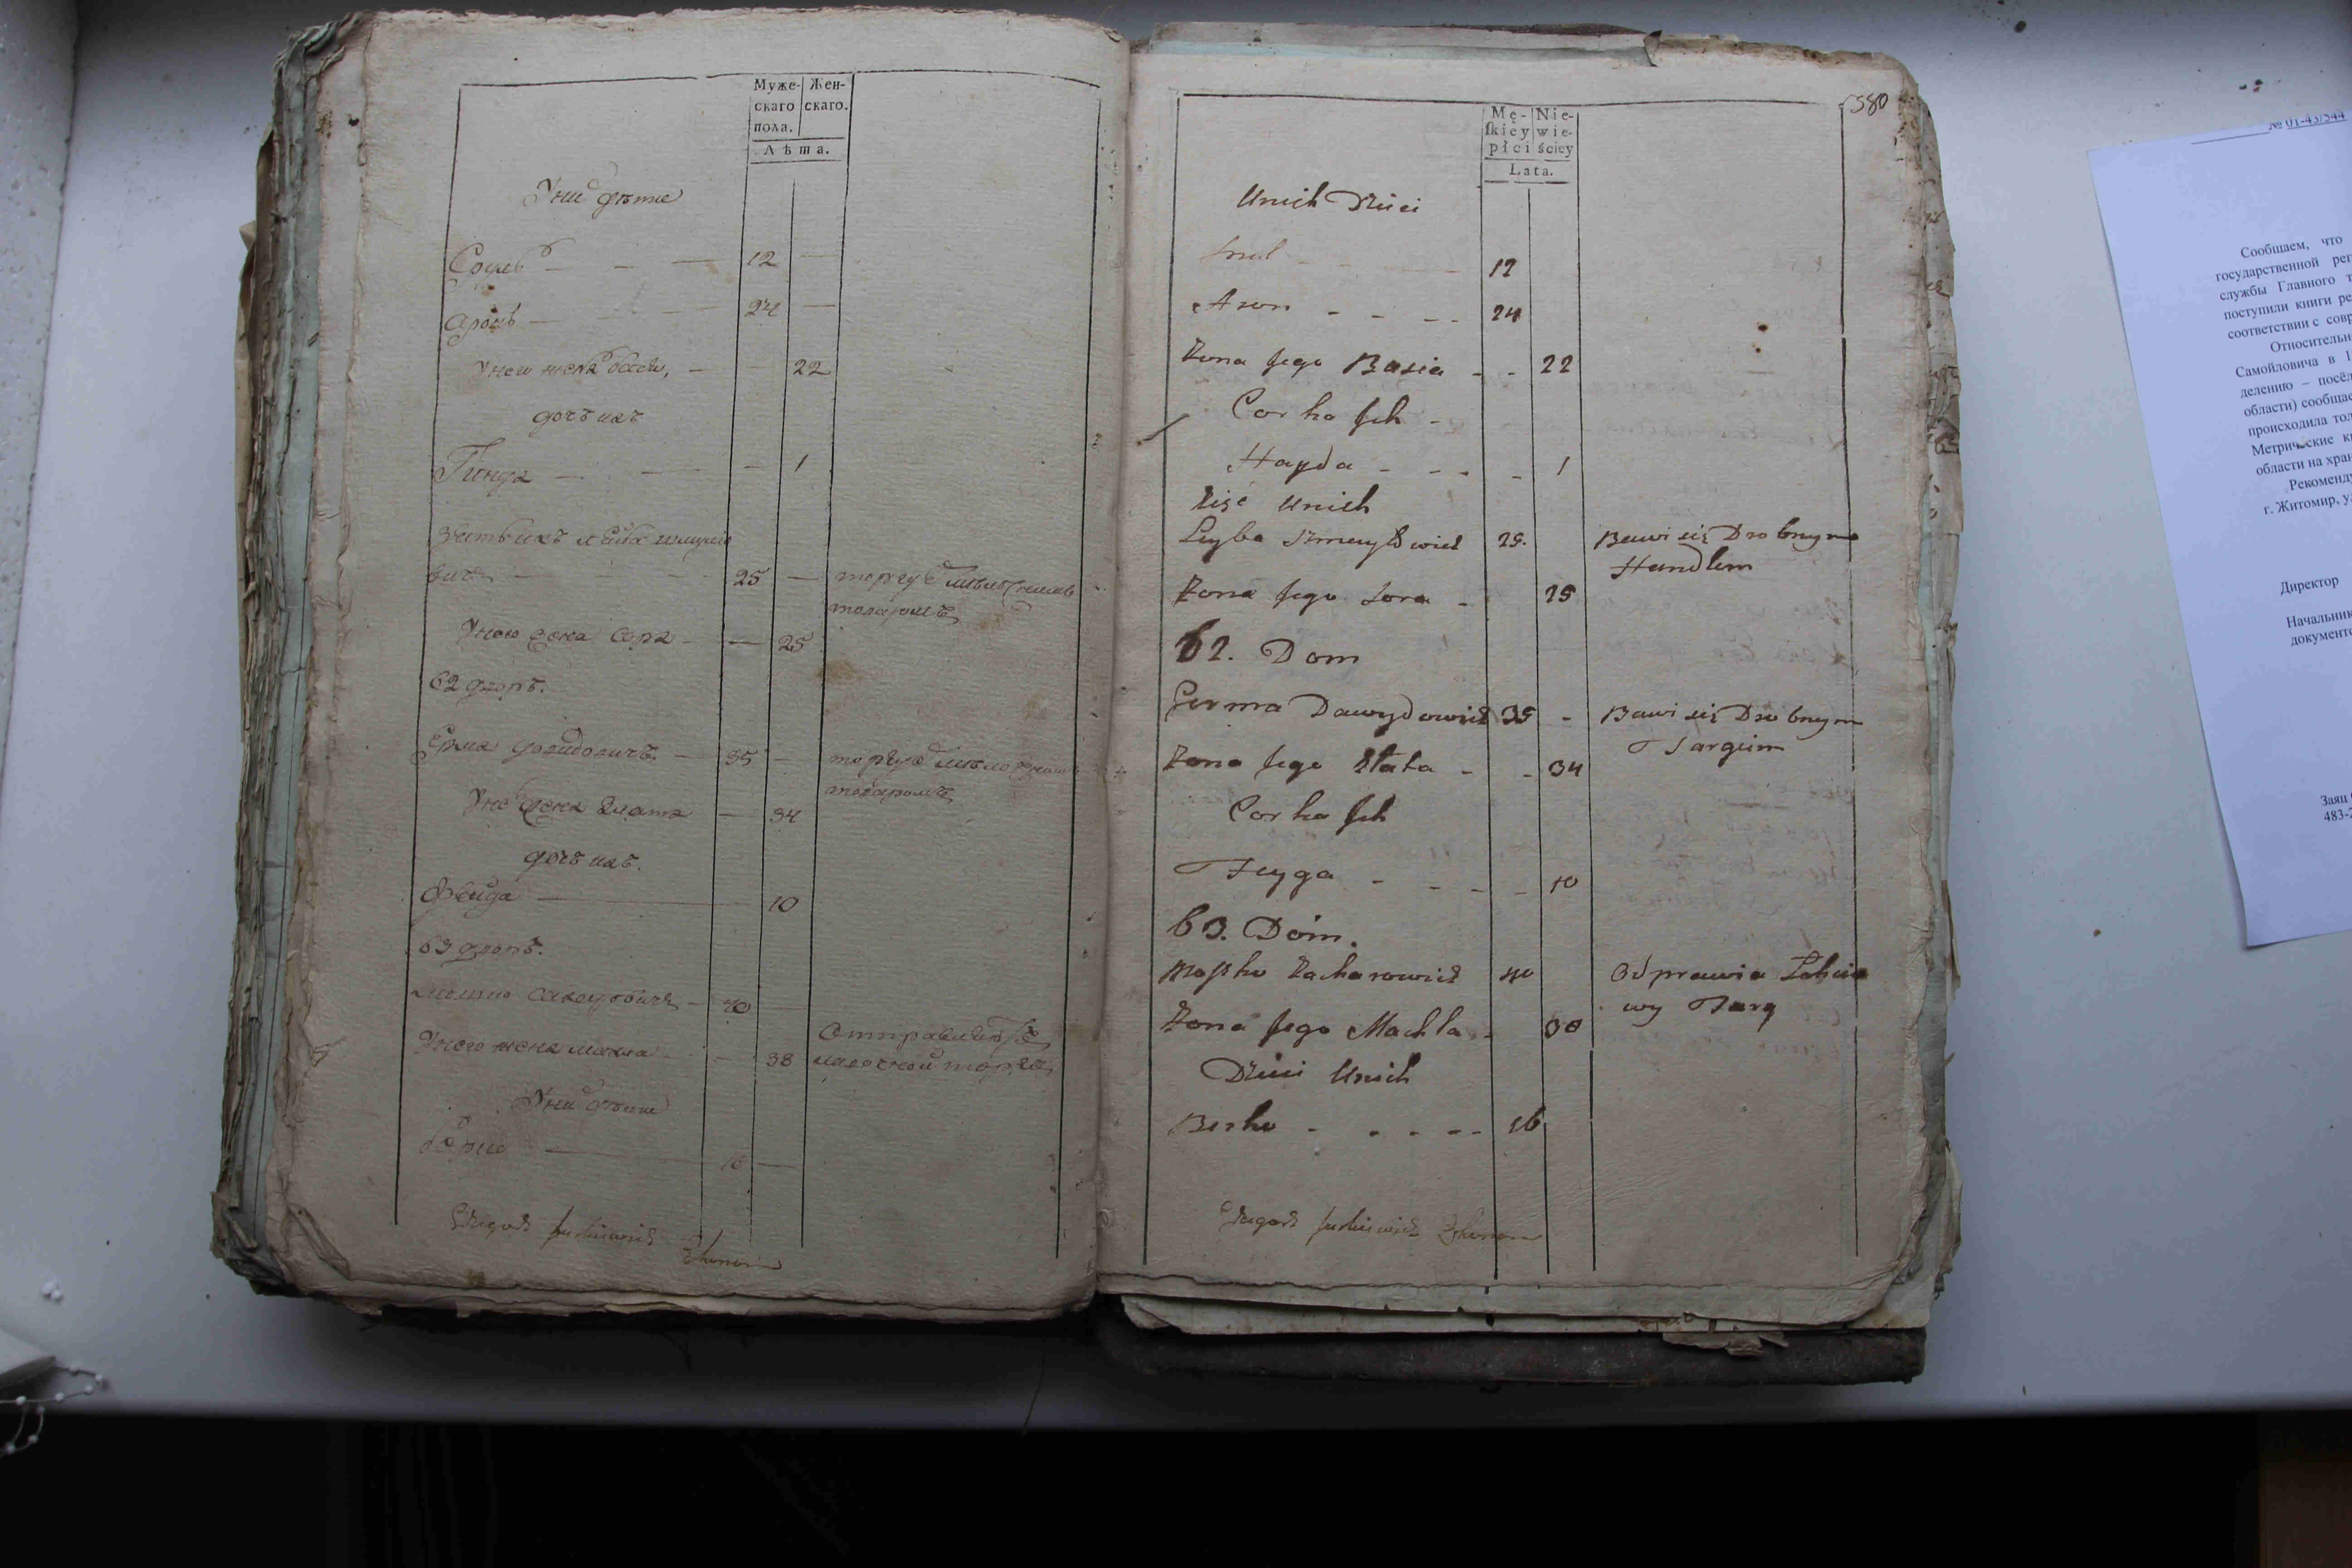 Муже- Жен-
скаго скаго.
пола.
Лѣта.
У них дѣти
12
Аронъ 24
У него жена Бася, 22
дочь ихъ
Гинда 1
Зять ихъ Лейба
вичъ 25 торгуетъ
товаромъ
У него жена Сора 25
62 дворъ.
Ерма Давидовичъ 35 торгуетъ
товаромъ
У него жена Злата 34
дочь ихъ.
Фейга 10
63 дворъ.
Мошко 40
Отправляетъ
У него жена Махла 38 торгъ
У них дѣти
Борко 16
380
Mę- Nie-
ſkiey wie-
płci ściey
Lata.
Unich Dzieci
Srul 12
Aron 24
Zona Jego Basia 22
Corka Jch
Hayda 1
Zięć Unich
Leyba 25. Bawi się Drobnym
Handlem
Zona Jego Sora 25
62. Dom
Germa Dawydowicz 35 Bawi się Drobnym
Targiem
Zona Jego Złata 34
Corka Jch
Feyga 10
63. Dom.
Moſzko Zacharowicz 40 Odprawia
wy Targ
Zona Jego Machla 38
Dzieci Unich
Berko 16
№ 01-43/544
Сообщаем, что
государственной рег
службы Главного т
поступили книги ре
соответствии с совр
Относительн
Самойловича в 1
делению – посёл
области) сообщае
происходила тол
Метрические кн
области на хран
Рекоменду
г. Житомир, у
Директор
Начальник
документо
Заяц
483-2